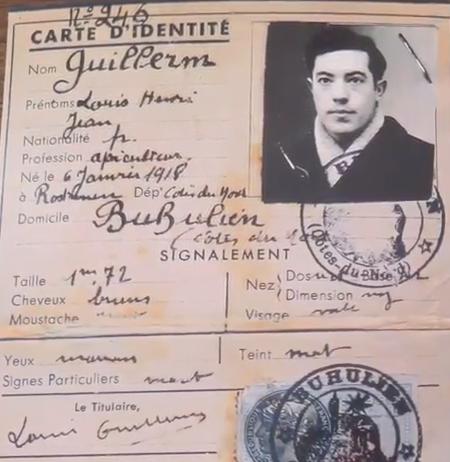 N° 246
CARTE D'IDENTITÉ
Nom Guillerm
Prénoms Louis Henri
Jean
Nationalité fr.
Profession apiculteur
Né le 6 Janvier 1918
à Rostrenen Dép' Côtes du Nord
Domicile BuBulien
(Côtes du
SIGNALEMENT
Taille 1m,72
Cheveux bruns
Moustache
Nez Dos
Dimension
Visage
Yeux marron
Teint mat
Signes Particuliers
Le Titulaire,
Louis Guillerm
(Côtes-du-
BUHULIEN